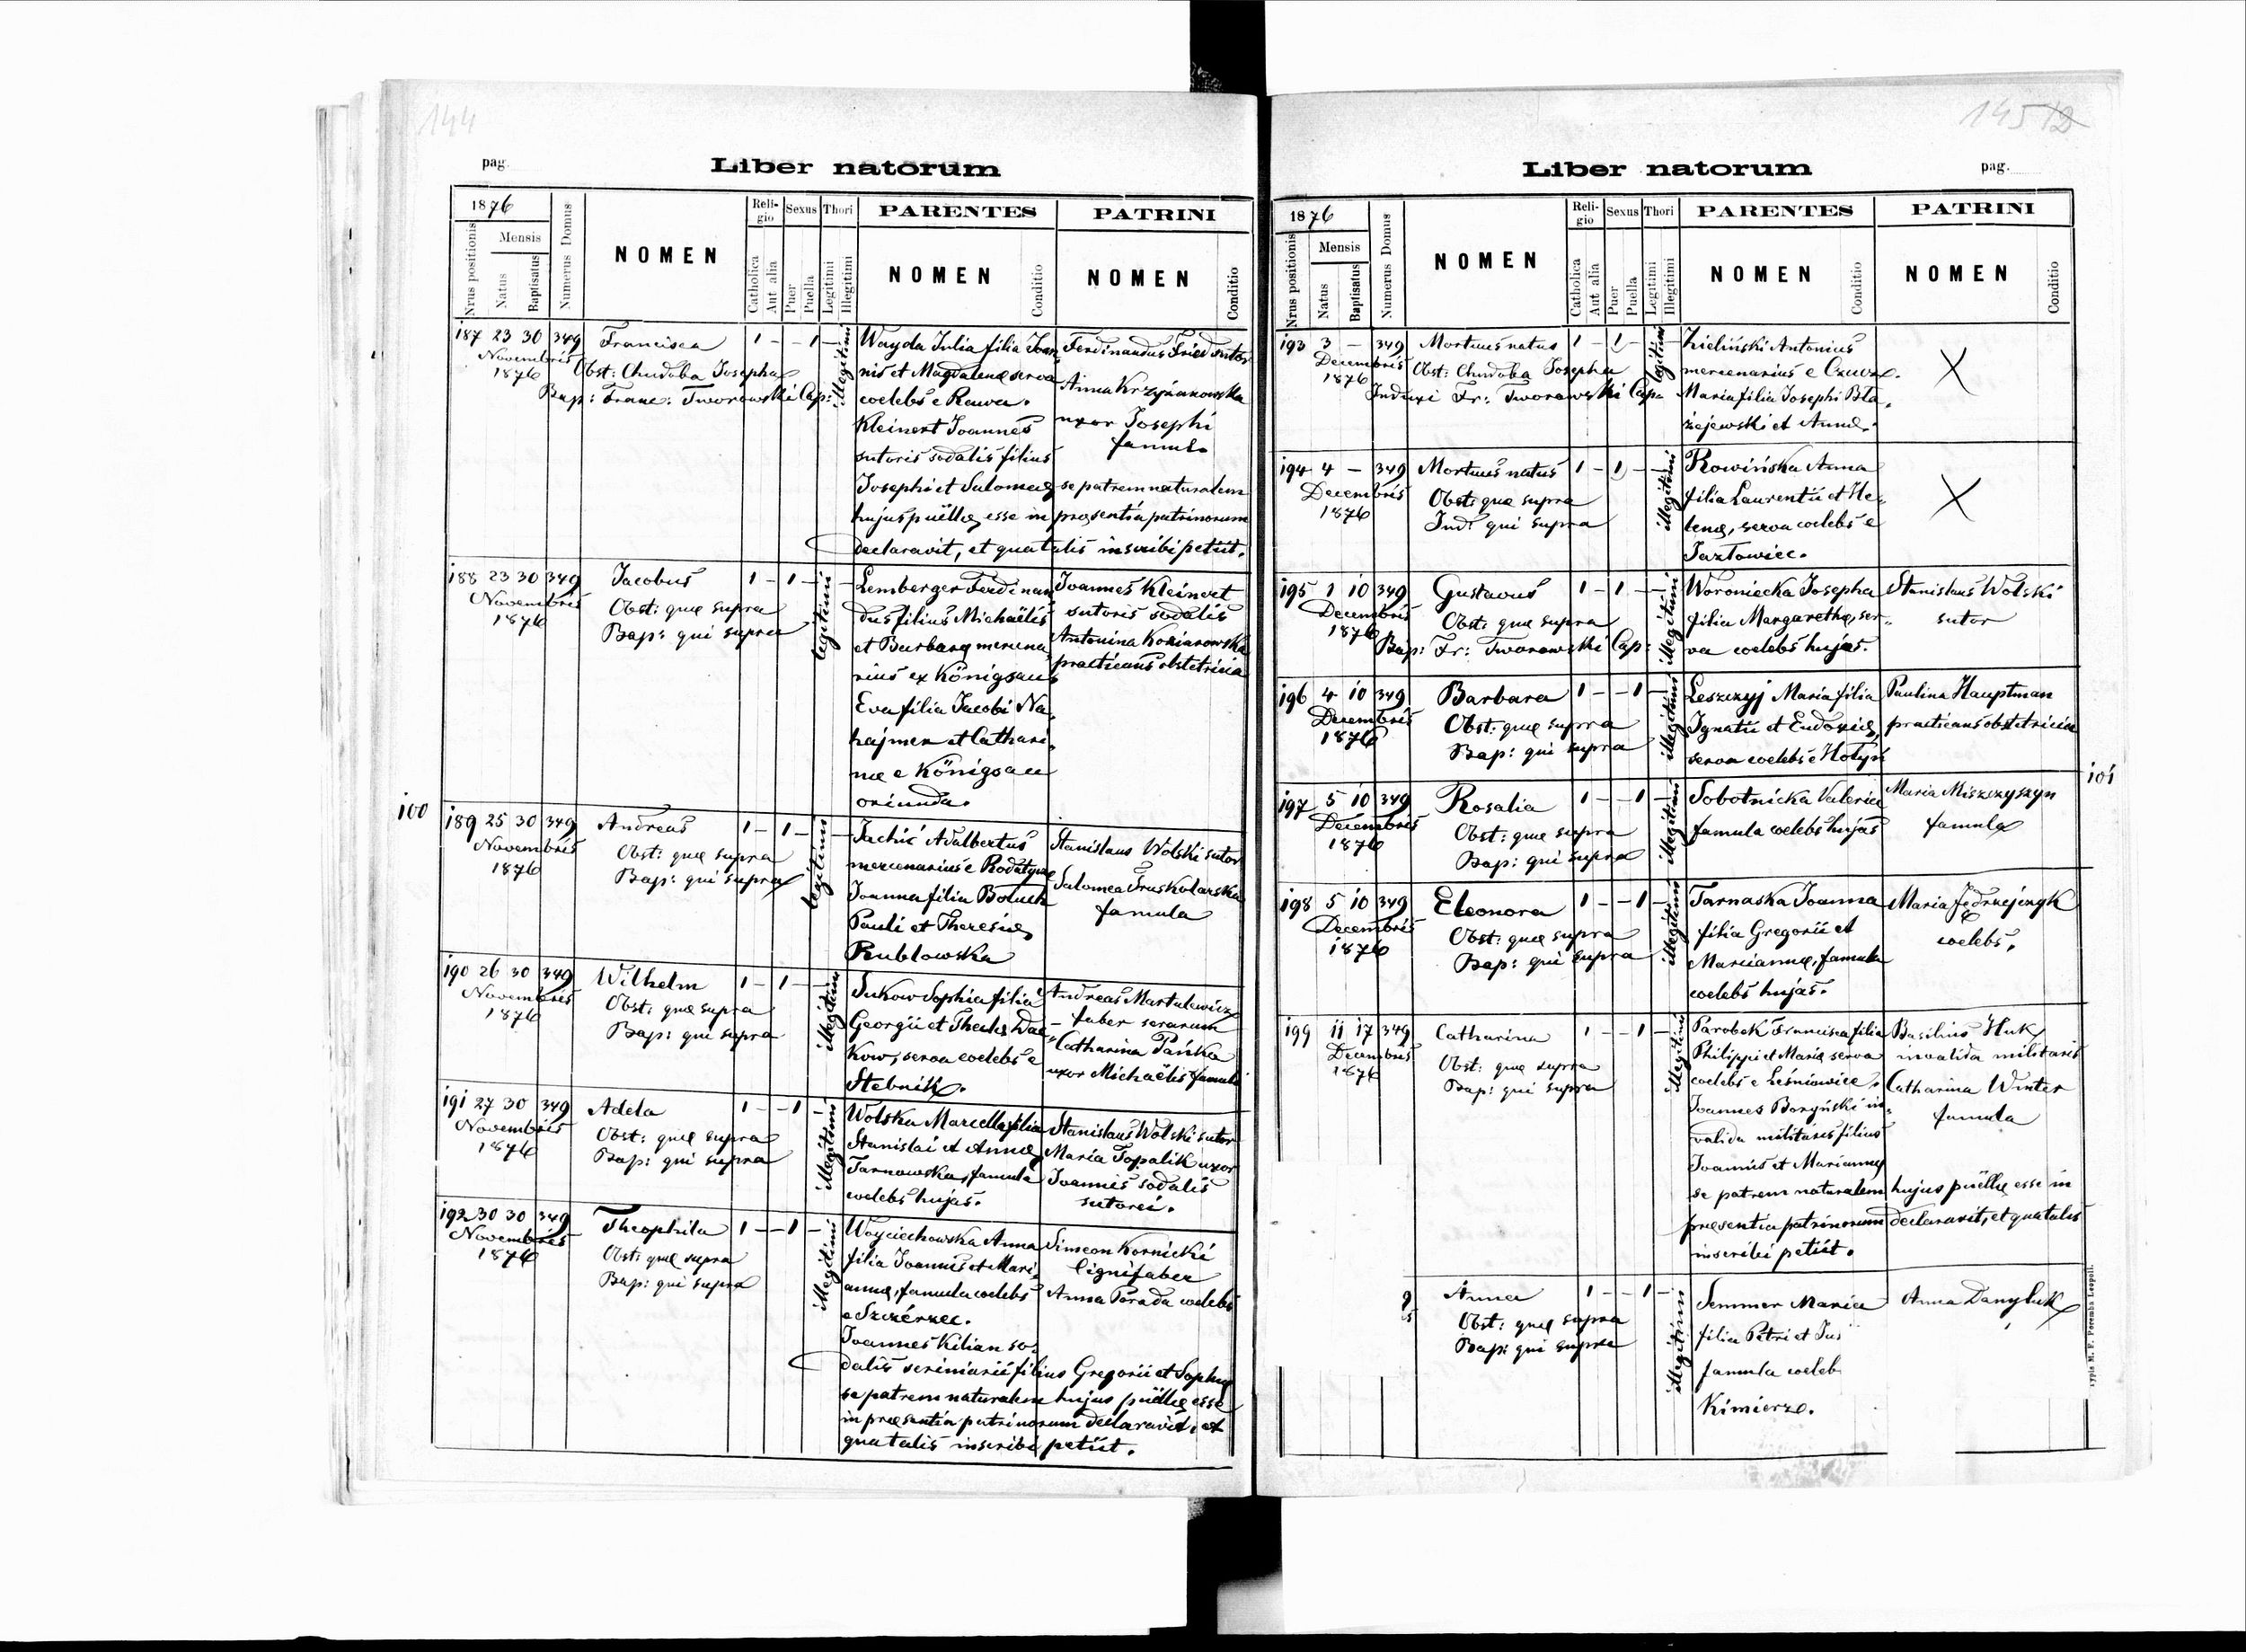 144
pag.
Liber natorum
1876
Nrus positionis
Mensis
Natus
Baptisatus
Numerus Domus
NOMEN
Religio
Catholica
Aut alia
Sexus
Puer
Puella
Thori
Legitimi
Illegitimi
PARENTES
NOMEN
Conditio
PATRINI
NOMEN
Conditio
187 23 30 349
Novembris
1876
Francisca
Obst: Chudoba Josepha
Bap: Franc: Tworowski Cap:
1 - - 1 -
illegitimi
Wayda Julia filia Joan
nis et Magdalenę serva
coelebs e Rawa.
Kleinert Joannes
sutoris sodalis filius
Josephi et Salomeę se patrem naturalem
hujus puellę esse in pręsentia patrinorum
declaravit, et qua talis inscribi petiit.
Ferdinandus Fried sutor
Anna Krzyżanowska
uxor Josephi
famul.
188 23 30 349
Novembris
1876
Jacobus
Obst: quę supra
Bap: qui supra
1 - 1 - -
legitimi
Lemberger Ferdinan
dus filius Michaëlis
et Barbarę mercena
rius ex Königsau
Eva filia Jacobi Na
hajmer et Cathari
nę e Königsau
oriunda.
Joannes Kleinert
sutoris sodalis
Antonina
practicans obstetricia
100
189 25 30 349
Novembris
1876
Andreas
Obst: quę supra
Bap: qui supra
1 - 1 - -
legitimi
Jachić Adalbertus
mercenarius e Rodatyne
Joanna filia Botuch
Pauli et Theresię
Rublowska
Stanislaus Wolski sutor
Salomea Truskolarska
famula
190 26 30 349
Novembris
1876
Wilhelm
Obst: quę supra
Bap: qui supra
1 - 1 - -
illegitimi
Sukow Sophia filia
Georgii et Theclę Dac
kow, serva coelebs e
Stebnik.
Andreas Martulewicz
faber serarum
Catharina Pańka
uxor Michaëlis famuli
191 27 30 349
Novembris
1876
Adela
Obst: quę supra
Bap: qui supra
1 - - 1 -
illegitimi
Wolska Marcella filia
Stanislai et Annę
Tarnowska, famula
coelebs hujas.
Stanislaus Wolski sutor
Maria Topalik uxor
Joannis sodalis
sutorei.
192 30 30 349
Novembris
1876
Theophila
Obst: quę supra
Bap: qui supra
1 - - 1 -
illegitimi
Woyciechowska Anna
filia Joannis et Mari
annę, famula coelebs
e Szczérzec.
Joannes Kilian so
dalis seriniarii filius Gregorii et Sophię
se patrem naturalem hujus puellę esse
in pręsentia patrinorum declaravit, et
qua talis inscribi petiit.
Simeon Kornicki
lignifaber
Anna Parada coelebs
145
Liber natorum
pag.
1876
Nrus positionis
Mensis
Natus
Baptisatus
Numerus Domus
NOMEN
Religio
Catholica
Aut alia
Sexus
Puer
Puella
Thori
Legitimi
Illegitimi
PARENTES
NOMEN
Conditio
PATRINI
NOMEN
Conditio
193 3 - 349
Decembris
1876
Mortuus natus
Obst: Chudoba Josepha
Induxi Fr: Tworowski Cap:
1 - 1 - -
legitimi
Zieliński Antonius
mercenarius e
Maria filia Josephi Bła
żejewski et Annę.
X
194 4 - 349
Decembris
1876
Mortuus natus
Obst: quę supra
Ind: qui supra
1 - 1 - -
illegitimi
Rowińska Anna
filia Laurentii et He
lenę, serva coelebs e
Jazłowiec.
X
195 1 10 349
Decembris
1876
Gustavus
Obst: quę supra
Bap: Fr: Tworowski Cap:
1 - 1 - -
illegitimi
Woroniecka Josepha
filia Margarethę, ser
va coelebs hujas.
Stanislaus Wolski
sutor
196 4 10 349
Decembris
1876
Barbara
Obst: quę supra
Bap: qui supra
1 - - 1 -
illegitimi
Leszczyj Maria filia
Ignatii et Eudoxię,
serva coelebs e Hołyń
Paulina Hauptman
practicans obstetricia
101
197 5 10 349
Decembris
1876
Rosalia
Obst: quę supra
Bap: qui supra
1 - - 1 -
illegitimi
Sobotnicka Valeria
famula coelebs hujas
Maria Miszczyszyn
famula
198 5 10 349
Decembris
1876
Eleonora
Obst: quę supra
Bap: qui supra
1 - - 1 -
illegitimi
Tarnaska Joanna
filia Gregorii et
Mariannę, famula
coelebs hujas.
Maria
coelebs.
199 11 17 349
Decembris
1876
Catharina
Obst: quę supra
Bap: qui supra
1 - - 1 -
illegitimi
Parobek Francisca filia
Philippi et Marię serva
coelebs e Leśniowice.
Joannes Boryński in
valida militaris filius
Joannis et Mariannę
se patrem naturalem hujus puellę esse in
pręsentia patrinorum declaravit, et qua talis
inscribi petiit.
Basilius Huk
invalida militaris
Catharina Winter
famula
9
Anna
Obst: quę supra
Bap: qui supra
1 - - 1 -
illegitimi
Semmer Maria
filia Petri et Jus
famula coeleb
Kimierz.
Anna Danyluk
typis M. F. Poremba Leopoli.